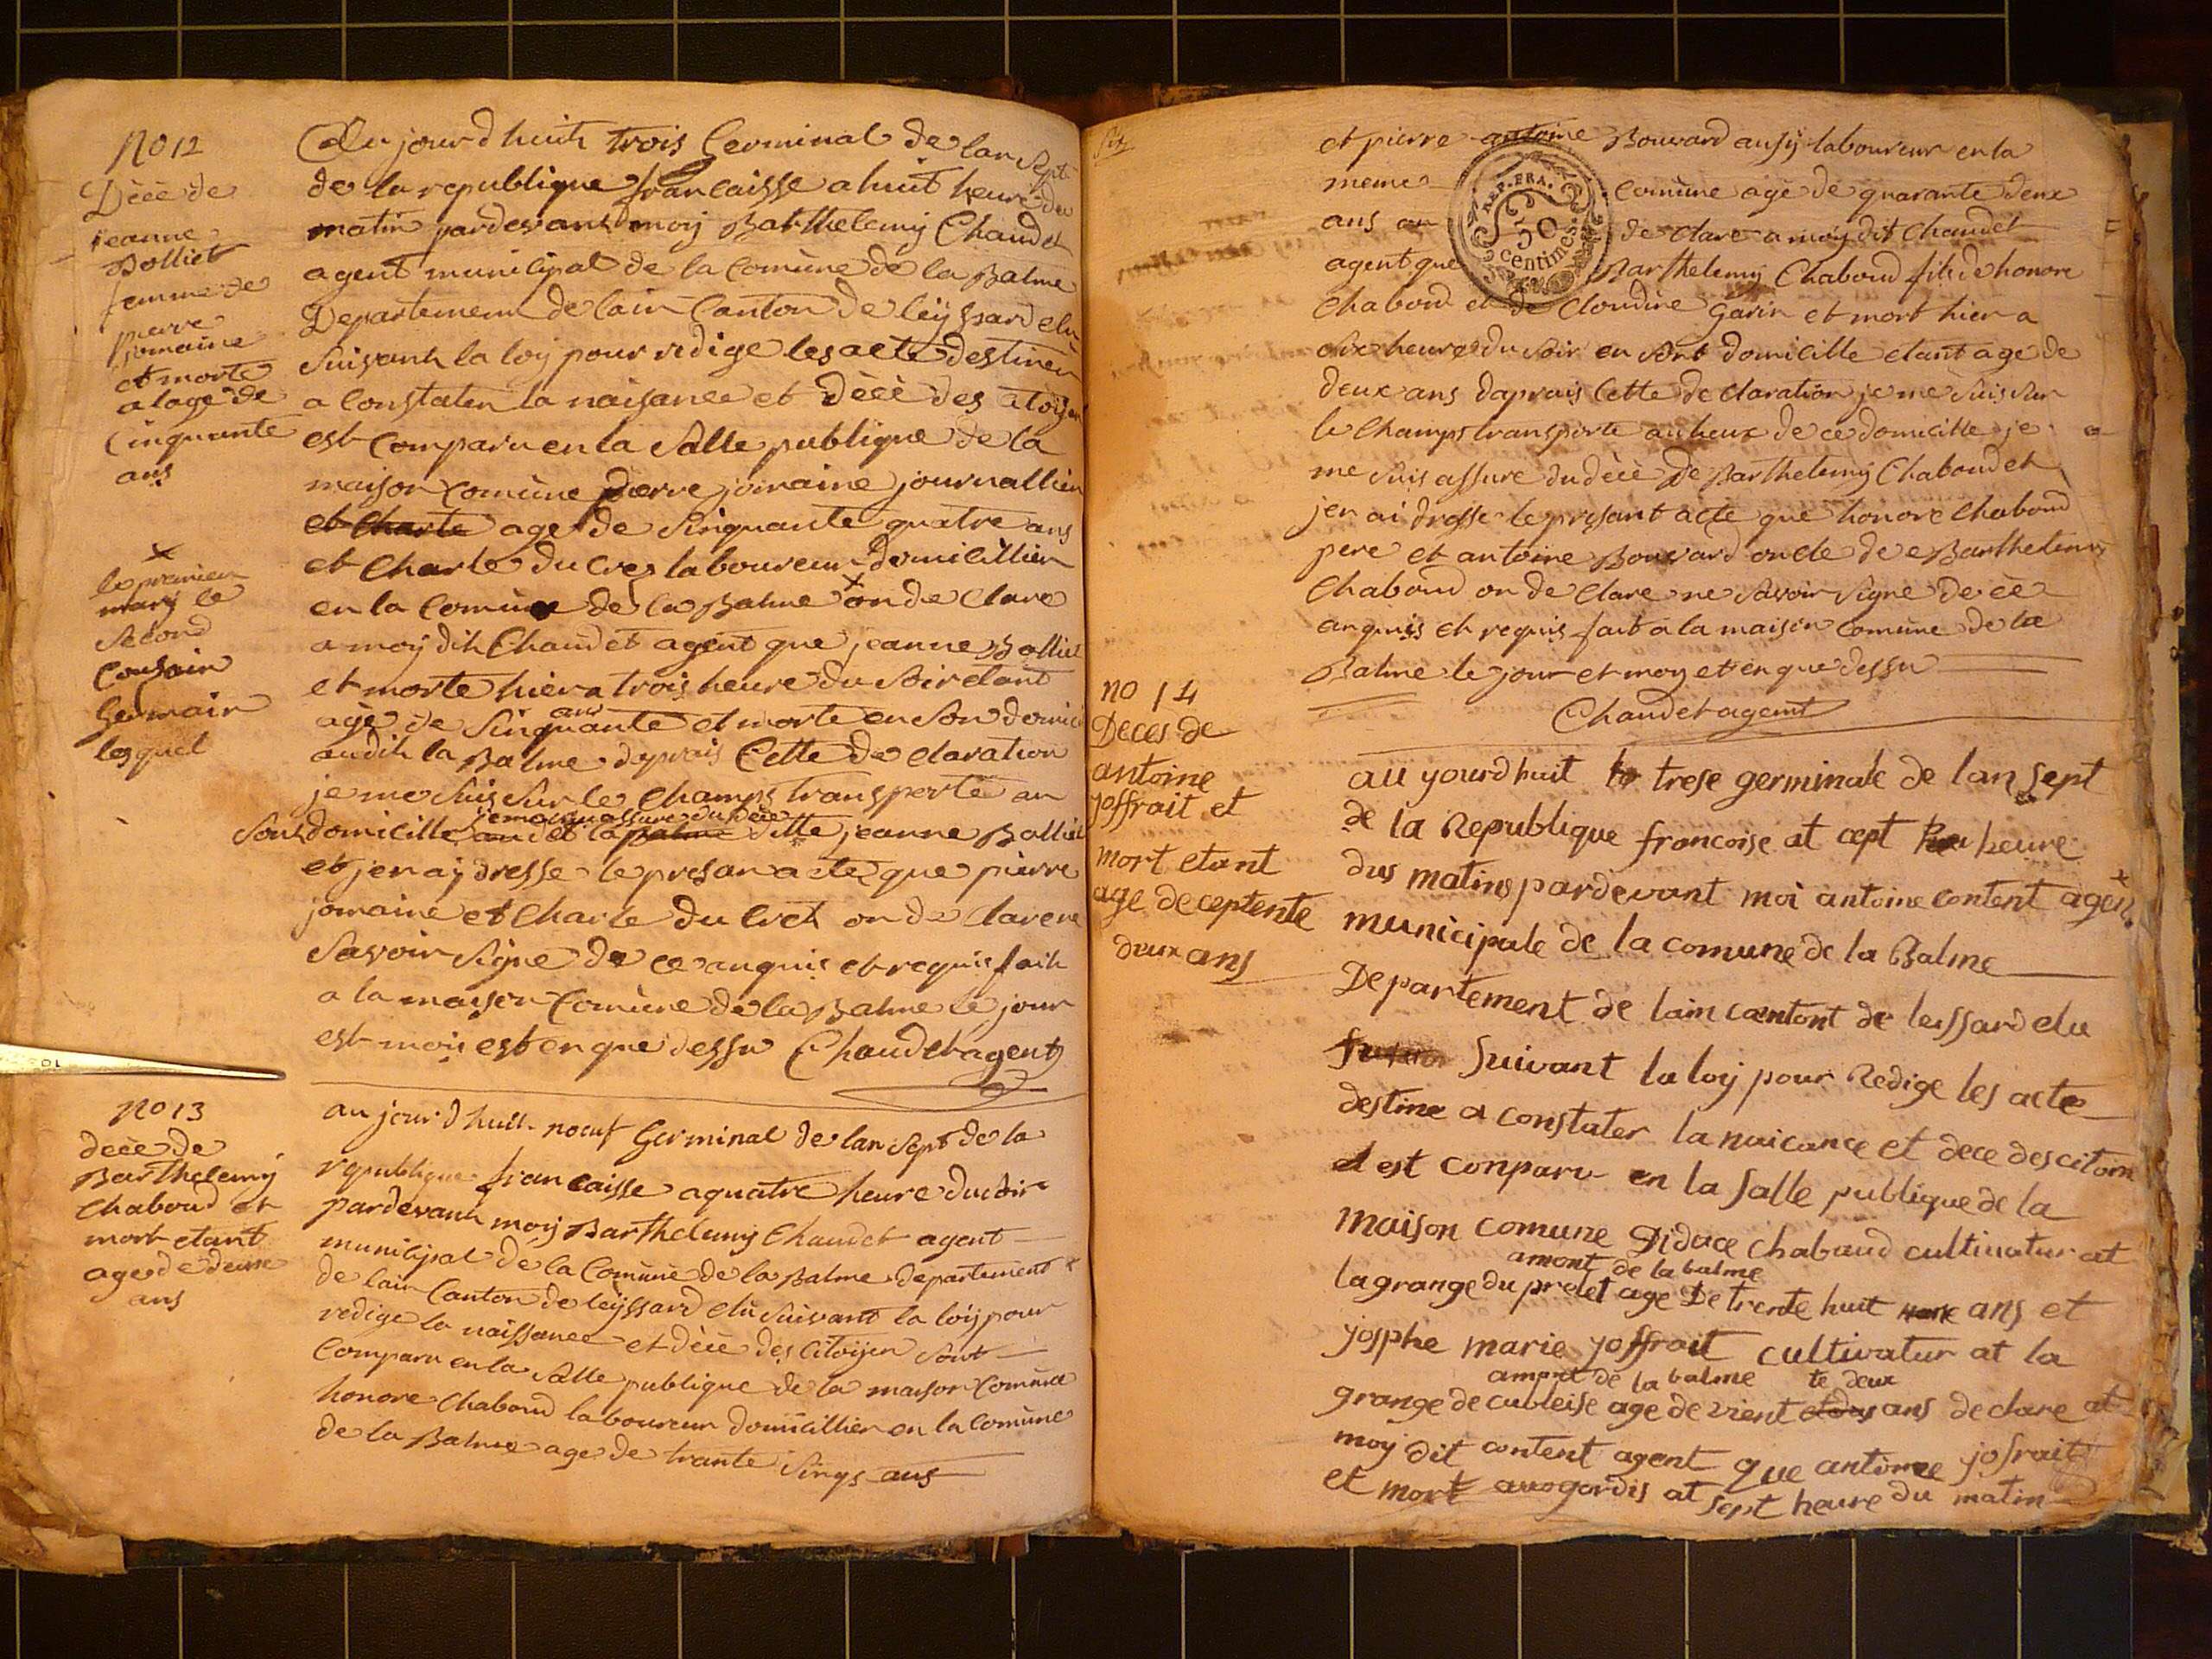 no 12
Dècè de
jeanne
Bolliet
femme de
pierre
jomaine
et morte
a lage de
Cinquante
ans
Au jour d huit trois Germinal de lan Sept
de la republique francaisse a huit heure du
matin pardevant moy Barthelemy Chaudet
agent municipal de la Comùne de la Balme
Departement de lain Canton de leyssard elu
Suivant la loy pour redige les acte destiner
a Constater la naisance et Dècè des Citoyen
est Comparu en la Salle publique de la
maison Comùne pierre jomaine journallier
et Charle age de Sinquante quatre ans
et Charle du Cret laboureur domicillier
en la Comùne de la Balme x on de Clare
a moy dit Chaudet agent que jeanne Bolliet
et morte hier a trois heure du Soir etant
agè de Sinquante ans et morte en Son domici
audit la Balme daprais Cette de claration
je me Suis Sur le Champs transporte au
Sons domicille je me suis assure du dèce
au det la Balme ditte jeanne Bolliet
et jen aj dresse le presan acte que pierre
jomaine et Charle du Cret on de Clare ne
Savoir Signe de ce anquis et requis fait
a la maison Comùne de la Balme le jour
est mois est en que dessu Chaudet agent
x
le premier
mary le
Second
Cousain
Germain
lesquel
no 13
decè de
Barthelemy
Chaboud et
mort etant
age de deux
ans
au jour d huit noeuf Germinal de lan Sept de la
republique francaisse a quatre heure du Soir
pardevant moy Barthelemy Chaudet agent
municipal de la Comùne de la Balme departement
de lain Canton de leyssard elu Suivant la loy pour
redige la naissance et dècè des Citoyen Sont
Comparu en la Salle publique de la maison Comùne
honore Chaboud laboureur domicillier en la Comùne
de la Balme age de trante Sinqs ans
Six
et pierre antoine Bouvard ausy laboureur en la
meme Comùne agè de quarante deux
ans on de Clare a moy dit Chaudet
agent que Barthelemy Chaboud fils de honore
Chaboud et de Cloudine Garin et mort hier a
Six heure du Soir en Sont domicille etant age de
deux ans daprais Cette de Claration je me Suis Sur
le Champs transporte au lieux de ce domicille je
me Suis assure du dècè de Barthelemy Chaboud et
jen ai dresse le presant acte que honore Chaboud
pere et antoine Bouvard oncle de Barthelemy
Chaboud on de Clare ne Savoir Signe de ce
anquis et requis fait a la maison Comùne de la
Balme le jour et moy et en que dessu
Chaudet agent
REP. FRA.
50
centimes.
no 14
Deces de
antoine
joffrait et
mort etant
age de ceptente
deux ans
au yourd huit le trese germinale de lan sept
de la Republique francoise at cept heu heure
dus matins pardevant moi antoine content agen
municipale de la comune de la Balme
Departement de lain cantont de leissard elu
Suivant la loy pour Redige les acte
destine a constater la naicance et dece des citoin
et est conparu en la Salle publique de la
maison comune Didace chaboud cultivatur at
lagrange du prelet amont de la balme age De trente huit ans et
josphe marie joffrait cultivatur at la
grange de cubleise amont de la balme age de vient te deux ans declare at
moy dit content agent que antoine jofrait
et mort auogordis at sept heure du matin